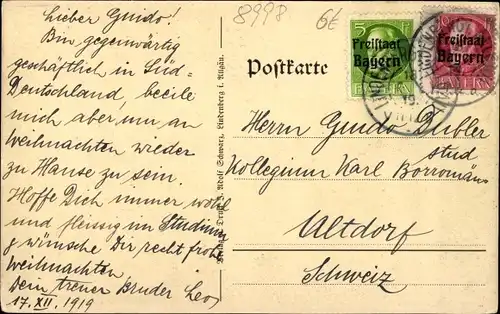 Lieber Guido!
Bin gegenwärtig
geschäftlich in Süd-
Deutschland, beeile
mich aber um an
Weihnachten wieder
zu Hause zu sein.
Hoffe Dich immer wohl
und fleissig im Studium
& wünsche Dir recht frohe
Weihnachten
Dein treuer Bruder Leo
17. XII. 1919
8998
6E
Postkarte
5
Freistaat
Bayern
BAYERN
10
Freistaat
Bayern
BAYERN
Adolf Schwarz, Lindenberg i. Allgäu.
Herrn Guido Dubler
stud
Kollegium Karl Borromäus
Altdorf
Schweiz